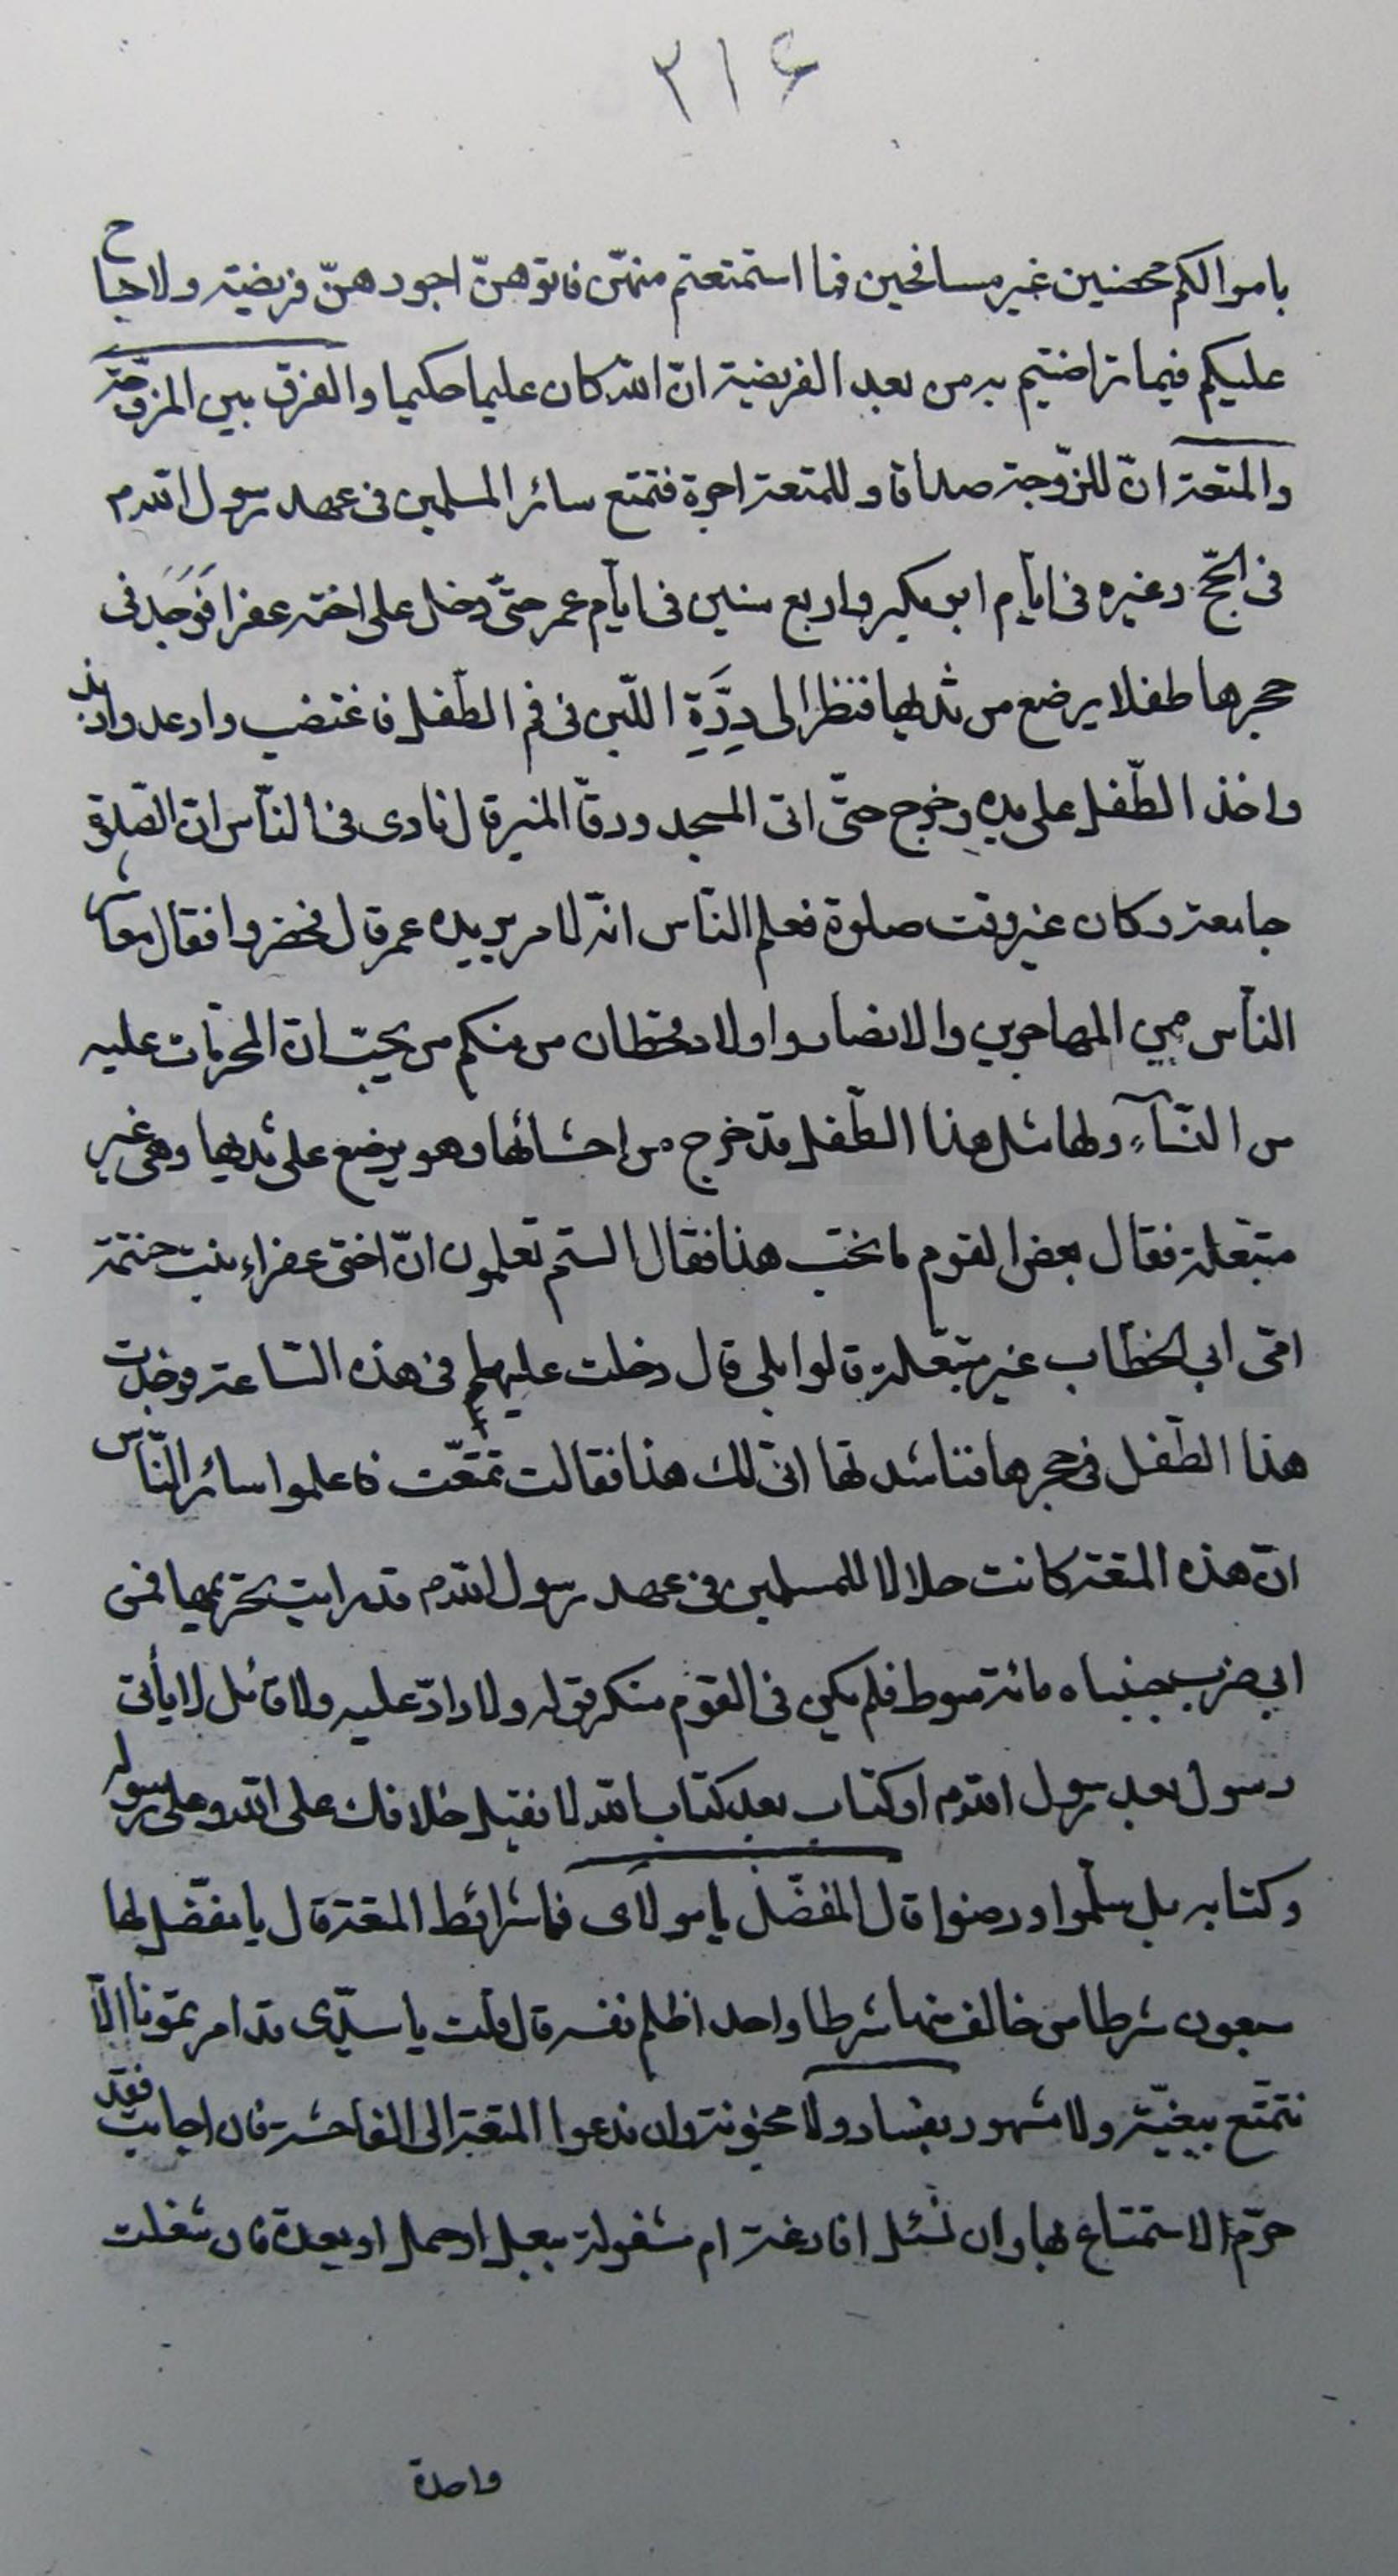 ٢١۶
باموالكم محصنين غير مسافحين فما استمتعتم منهنّ فاتوهنّ اجورهنّ فريضة ولا جناح
عليكم فيما تراضيتم به من بعد الفريضة انّ الله كان عليما حكيما والفرق بين المزوجة
والمتعة انّ للزّوجة صداقا وللمتعة اجرة فتمتع سائر المسلمين فى عهد رسول الله م
فى الحجّ وغيره فى ايّام ابو بكر واربع سنين فى ايّام عمر حتّى دخل على اخته عفرا فَوَجَد فى
حجرها طفلا يرضع من ثديها فنظر الى دِرَّةِ اللّبن فى فم الطّفل فاغتضب وارعد وازبد
واخذ الطّفل على يده وخرج حتّى اتى المسجد ورقا المنبر قال نادى فى النّاس انّ الصّلوة
جامعة وكان غير وقت صلوة فعلم النّاس انّه لامر يريده عمر قال فحضروا فقال معاشر
النّاس من المهاجرين والانصار واولاد قحطان من منكم من يحبّ ان المحرّمات عليه
من النّسآء ولها مثل هذا الطّفل قد خرج من احشائها وهو يرضع على ثديها وهى غير
متبعلة فقال بعض القوم ما نحبّ هذا فقال الستم تعلمون انّ اختى عفراء بنت حنتمة
امّى ابى الخطّاب غير متبعّلة قالوا بلى قال دخلت عليها فى هذه السّاعة فوجدت
هذا الطّفل فى حجرها فناشدتها انّى لك هذا فقالت تمتّعت فاعلموا سائر النّاس
انّ هذه المتعة كانت حلالا للمسلمين فى عهد رسول الله م قد رايت تحريمها فمن
ابى ضرب جنباه مائة سوط فلم يكن فى القوم منكر قوله ولا رادّ عليه ولا قائل لا يأتى
رسول بعد رسول الله م او كتاب بعد كتاب الله لا نقبل خلافك على الله وعلى رسوله
وكتابه بل سلّموا ورضوا قال المفضّل يا مولاى فما شرائط المتعة قال يا مفضّل لها
سبعون شرطا من خالف منها شرطا واحد اظلم نفسه قال قلت يا سيّدى قد امرتمونا الّا
نتمتّع ببغيّة ولا مشهور بفساد ولا مجنونة وان ندعوا المتعة الى الفاحشة فان اجابت فقد
حرّم الاستمتاع بها وان نسئل افارغة ام مشغولة ببعل او حمل او بعدة فان شغلت
واحدة